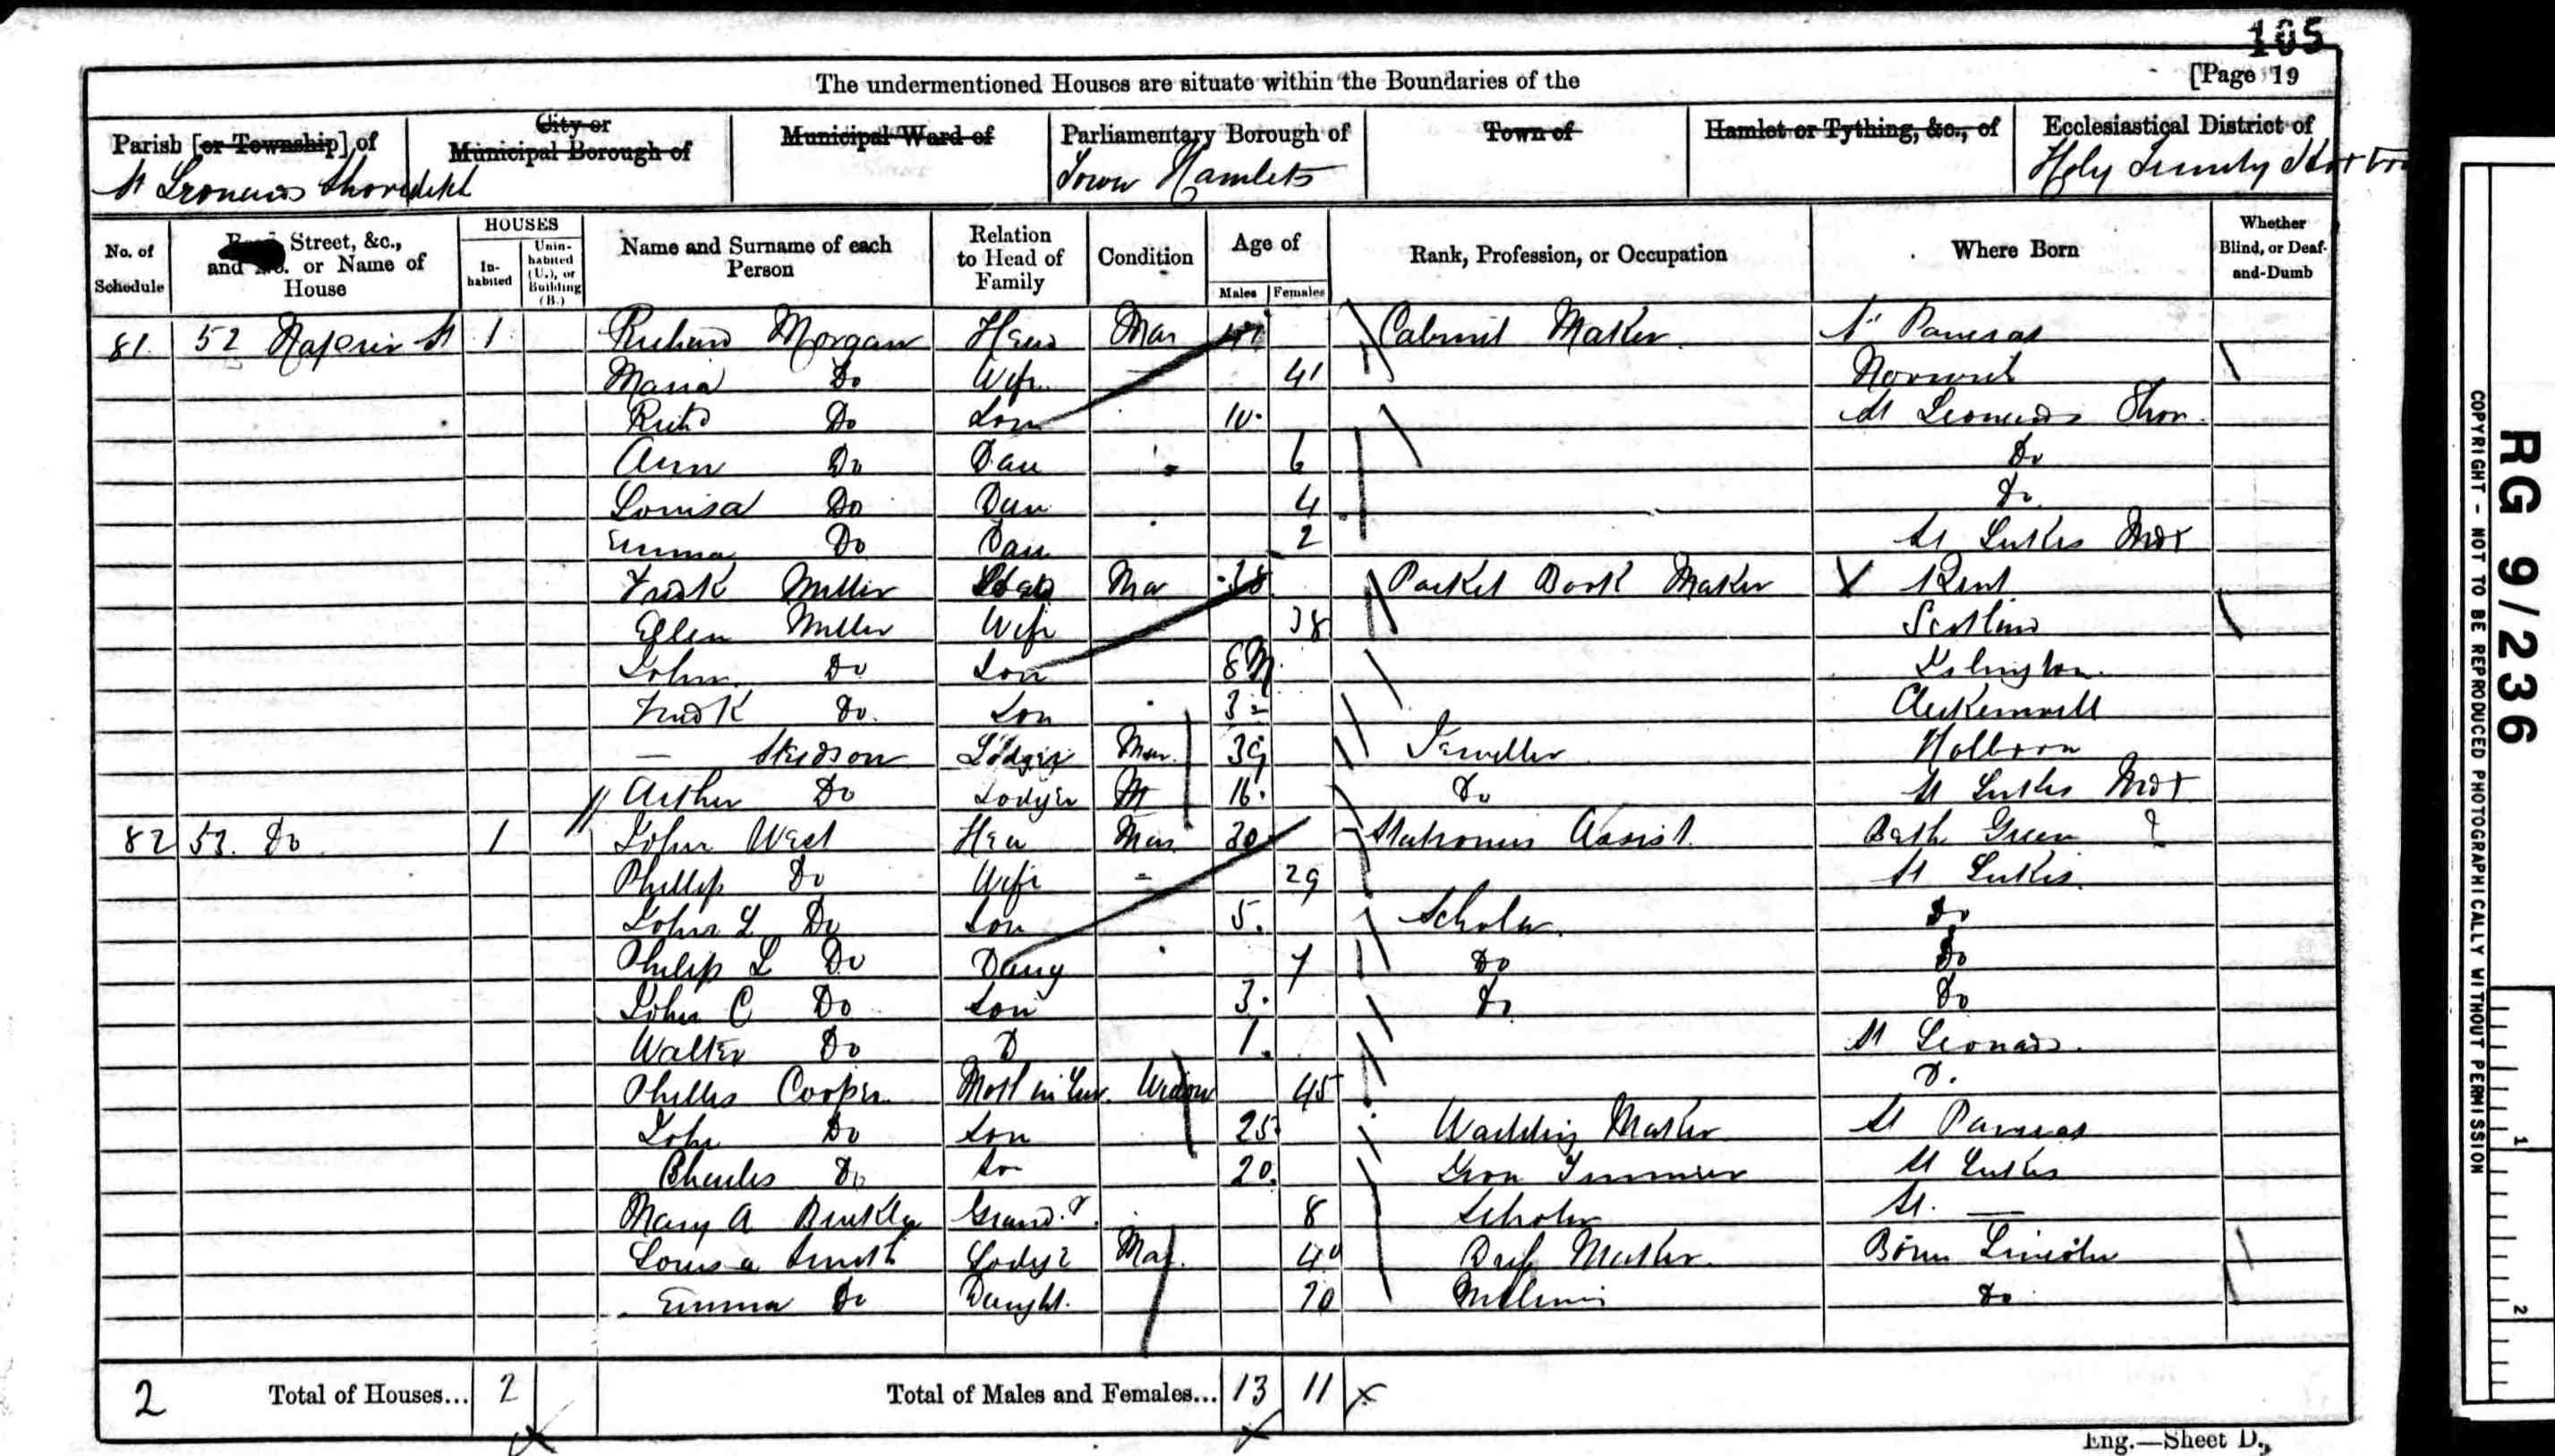 105
The undermentioned Houses are situate within the Boundaries of the [Page 19
Parish [or Township] of City or Municipal Borough of Municipal Ward of Parliamentary Borough of Town of Hamlet or Tything, &c., of Ecclesiastical District of
St Leonards Shoreditch Tower Hamlets Holy Trinity Hoxton
No. of Schedule Street, &c., and No. or Name of House HOUSES In-habited Unin-habited (U.), or Building (B.) Name and Surname of each Person Relation to Head of Family Condition Age of Males Females Rank, Profession, or Occupation Where Born Whether Blind, or Deaf-and-Dumb
81 52 Napier St 1 Richard Morgan Head Mar 41 Cabinet Maker St Pancras
Maria Do Wife 41 Norwich
Richd Do Son 10 St Leonards Shor
Ann Do Dau 6 Do
Louisa Do Dau 4 Do
Emma Do Dau 2 St Lukes Mdx
Fredk Miller Mar 38 Pocket Book Maker Kent
Ellen Miller Wife 38 Scotland
John Do Son 8 M Islington
Fredk Do Son 3 Clerkenwell
— Lodger Mar 39 Jeweller Holborn
Arthur Do Lodger 16 Do St Lukes Mdx
82 53 Do 1 John West Head Mar 30 Stationers Assist Beth Green
Phillip Do Wife 29 St Lukes
John L Do Son 5 Scholar Do
Philip L Do Daug 7 Do Do
John C Do Son 3 Do Do
Walter Do D 1 St Leonards
Phillis Cooper Moth in Law Widow 45 D.
John Do Son 25 Wadding Maker St Pancras
Charles Do So 20 St Lukes
Mary A Grand. D 8 Scholar St. —
Louisa Smith Lodgr Mar 40 Maker Lincoln
Emma Do Daught. 20 Do
2 Total of Houses... 2 Total of Males and Females... 13 11
Eng.—Sheet D.
RG 9/236
COPYRIGHT - NOT TO BE REPRODUCED PHOTOGRAPHICALLY WITHOUT PERMISSION
1
2